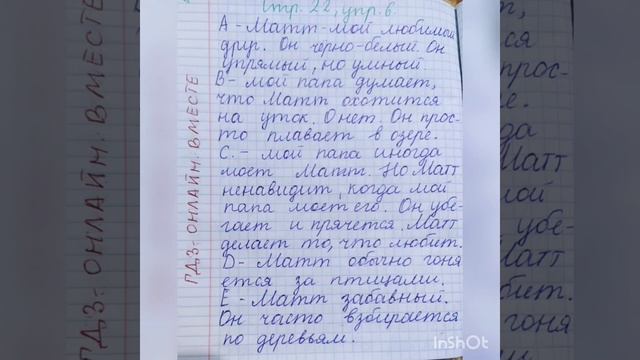 Стр. 22, упр. 6.
A - Матт - мой любимой
друг. Он черно-белый. Он
упрямый, но умный.
B - мой папа думает,
что Матт охотится
на уток. О нет. Он прос-
то плавает в озере.
C. - мой папа иногда
моет Матт. Но Матт
ненавидит, когда мой
папа моет его. Он убе-
гает и прячется. Матт
делает то, что любит.
D - Матт обычно гоня
ется за птицами.
E - Матт забавный.
Он часто взбирается
по деревьям.
ГДЗ:- ОНЛАЙН. ВМЕСТЕ
InShOt